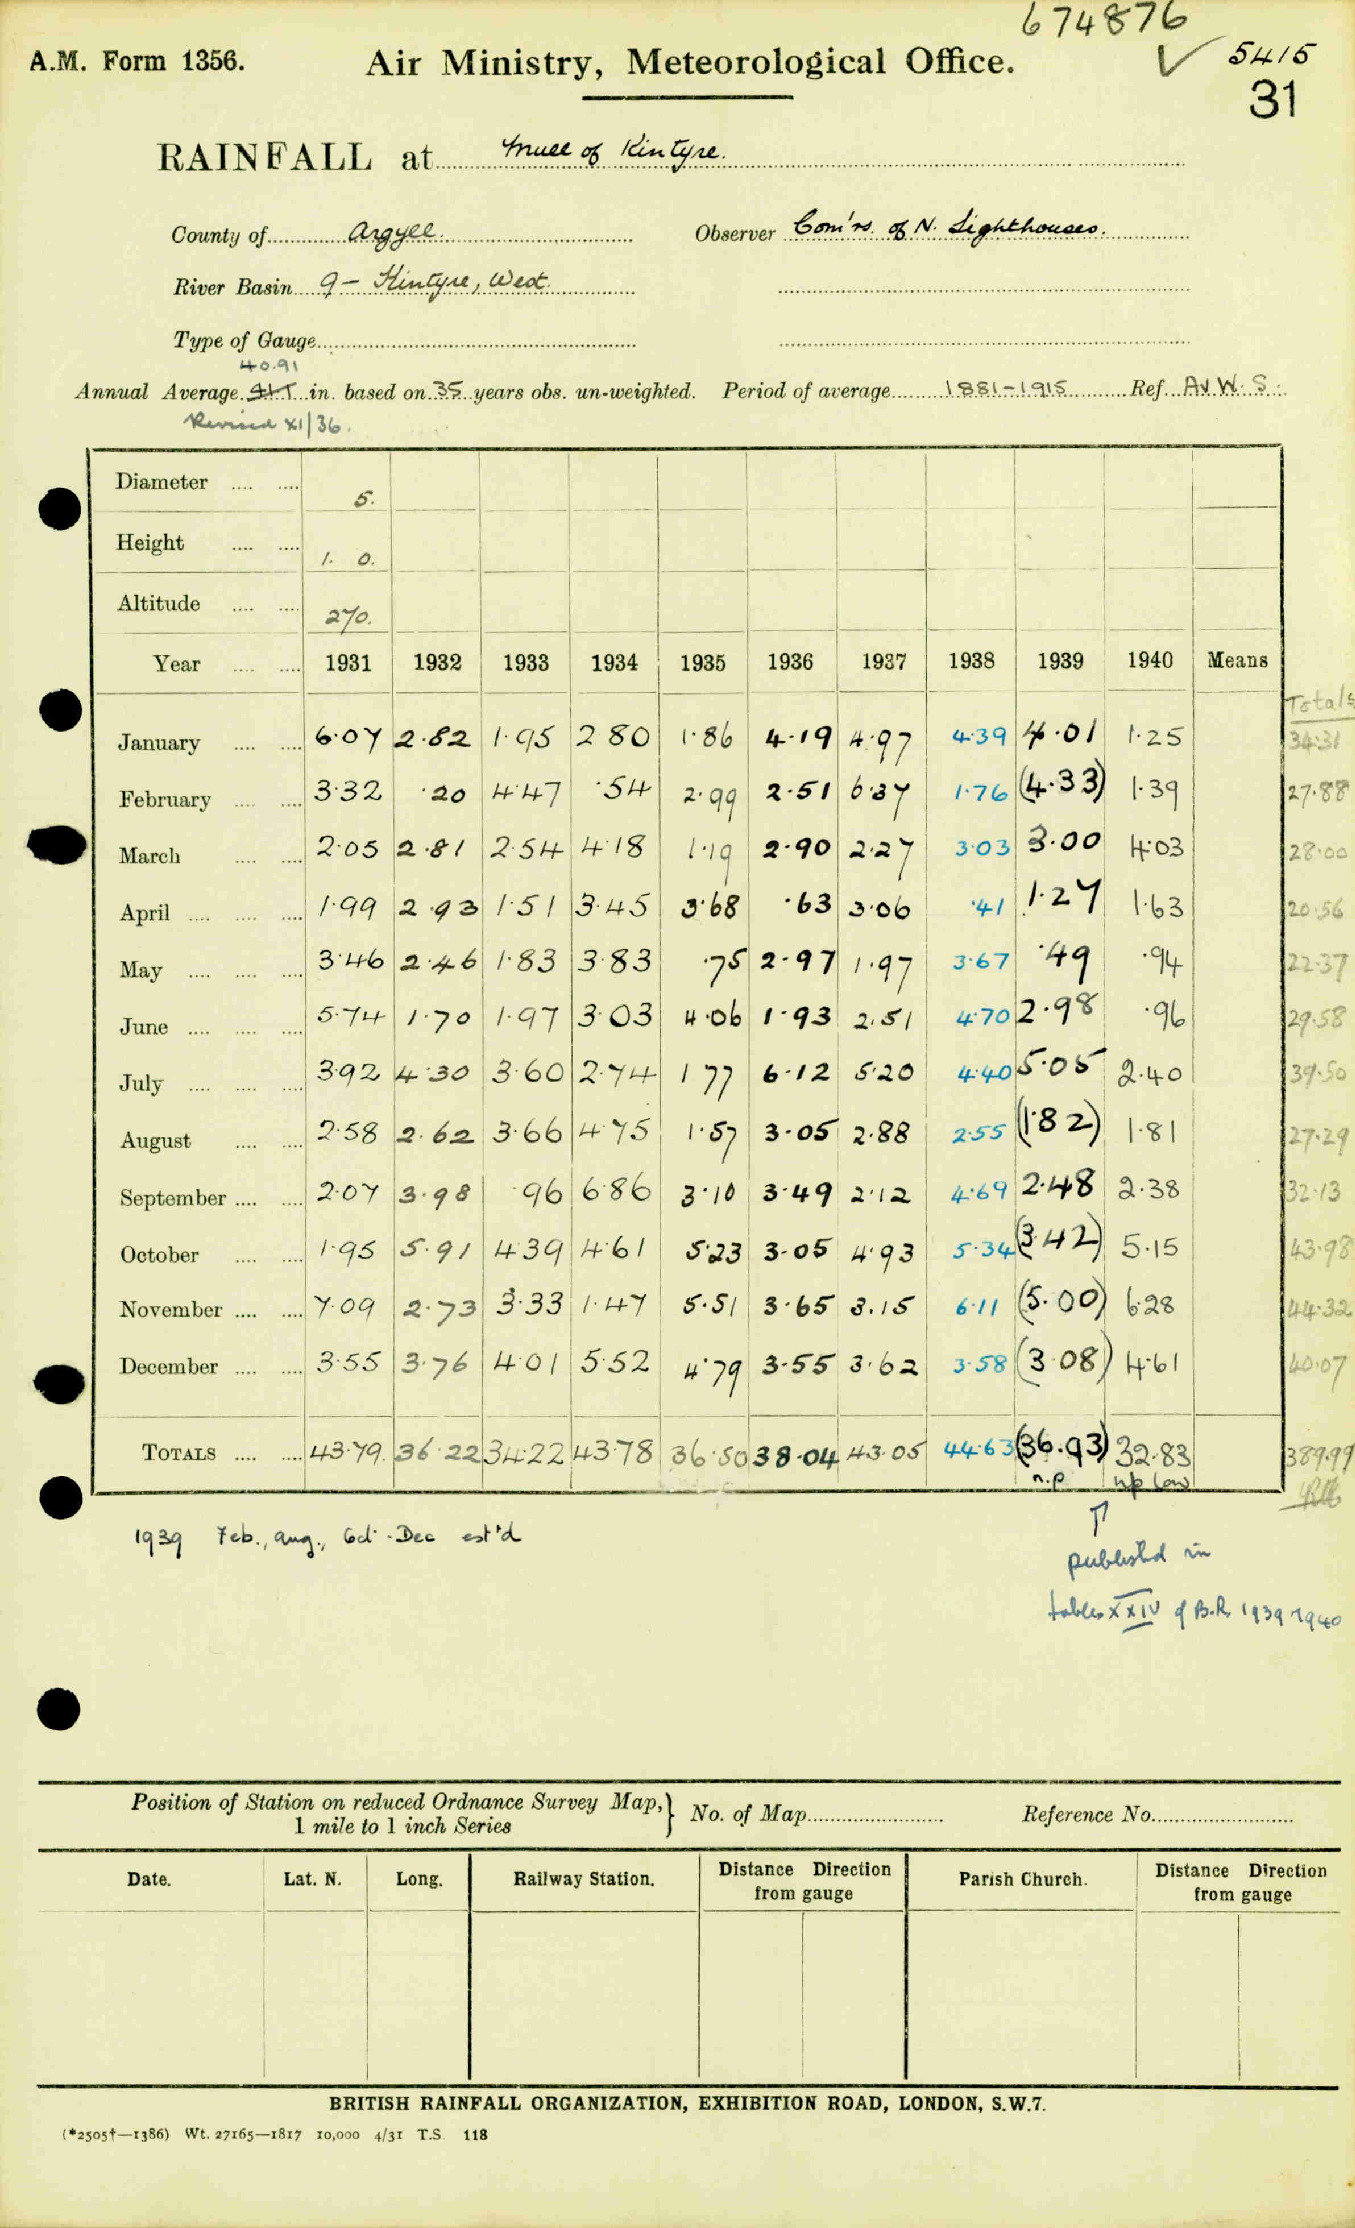 674876
A.M. Form 1356. Air Ministry, Meteorological Office. 5415
31
RAINFALL at Mull of Kintyre.
County of Argyll. Observer Com'rs. of N. Lighthouses.
River Basin 9 - Kintyre, West.
Type of Gauge
40.91
Annual Average in. based on 35 years obs. un-weighted. Period of average 1881-1915 Ref. Av. W. S.
Revised XI/36.
Diameter 5.
Height 1. 0.
Altitude 270.
Year 1931 1932 1933 1934 1935 1936 1937 1938 1939 1940 Means
Totals
January 6.07 2.82 1.95 2.80 1.86 4.19 4.97 4.39 4.01 1.25 34.31
February 3.32 .20 4.47 .54 2.99 2.51 6.37 1.76 (4.33) 1.39 27.88
March 2.05 2.81 2.54 4.18 1.19 2.90 2.27 3.03 3.00 4.03 28.00
April 1.99 2.93 1.51 3.45 3.68 .63 3.06 .41 1.27 1.63 20.56
May 3.46 2.46 1.83 3.83 .75 2.97 1.97 3.67 .49 .94 22.37
June 5.74 1.70 1.97 3.03 4.06 1.93 2.51 4.70 2.98 .96 29.58
July 3.92 4.30 3.60 2.74 1.77 6.12 5.20 4.40 5.05 2.40 39.50
August 2.58 2.62 3.66 4.75 1.57 3.05 2.88 2.55 (1.82) 1.81 27.29
September 2.07 3.98 .96 6.86 3.10 3.49 2.12 4.69 2.48 2.38 32.13
October 1.95 5.91 4.39 4.61 5.23 3.05 4.93 5.34 (3.42) 5.15 43.98
November 7.09 2.73 3.33 1.47 5.51 3.65 3.15 6.11 (5.00) 6.28 44.32
December 3.55 3.76 4.01 5.52 4.79 3.55 3.62 3.58 (3.08) 4.61 40.07
TOTALS 43.79 36.22 34.22 43.78 36.50 38.04 43.05 44.63 (36.93) 32.83 389.99
n.p. n/p low
1939 Feb., Aug., Oct - Dec est'd
published in
tables XXIV of B.R. 1939 1940
Position of Station on reduced Ordnance Survey Map, 1 mile to 1 inch Series No. of Map Reference No.
Date. Lat. N. Long. Railway Station. Distance Direction from gauge Parish Church. Distance Direction from gauge
BRITISH RAINFALL ORGANIZATION, EXHIBITION ROAD, LONDON, S.W.7.
(*2505†—1386) Wt. 27165—1817 10,000 4/31 T.S. 118